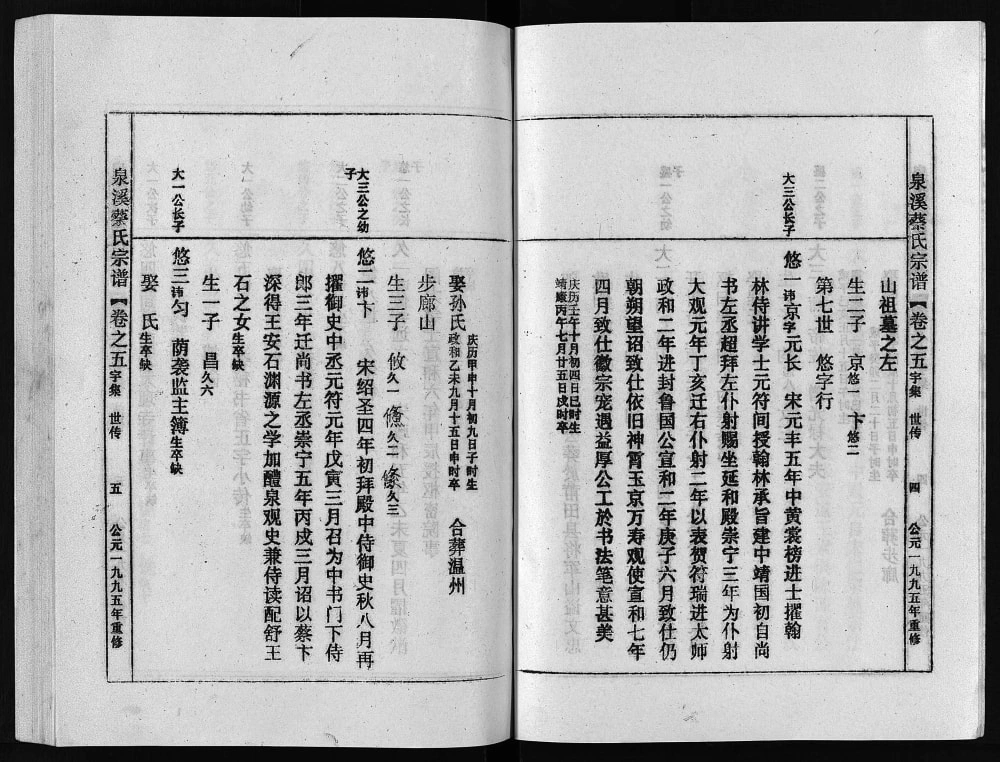 泉溪蔡氏宗谱【卷之五字集 世传 四 公元一九九五年重修
山祖墓之左
生二子 京悠一 卞悠二
第七世 悠字行
大三公长子
悠一讳京字元长 宋元丰五年中黄裳榜进士擢翰
林侍讲学士元符间授翰林承旨建中靖国初自尚
书左丞超拜左仆射赐坐延和殿崇宁三年为仆射
大观元年丁亥迁右仆射二年以表贺符瑞进太师
政和二年进封鲁国公宣和二年庚子六月致仕仍
朝朔望诏致仕依旧神霄玉京万寿观使宣和七年
四月致仕徽宗宠遇益厚公工於书法笔意甚美
庆历壬午十月初四日巳时生
靖康丙午七月廿五日戌时卒
娶孙氏
庆历甲申十月初九日子时生
政和乙未九月十五日申时卒
合葬温州
步廊山
生三子 攸久一 鯈久二 絛久三
大三公之幼
子
悠二讳卞 宋绍圣四年初拜殿中侍御史秋八月再
擢御史中丞元符元年戊寅三月召为中书门下侍
郎三年迁尚书左丞崇宁五年丙戌三月诏以蔡卞
深得王安石渊源之学加醴泉观史兼侍读配舒王
石之女生卒缺
生一子 昌久六
大一公长子
悠三讳匀 荫袭监主簿生卒缺
娶 氏生卒缺
泉溪蔡氏宗谱【卷之五字集 世传 五 公元一九九五年重修